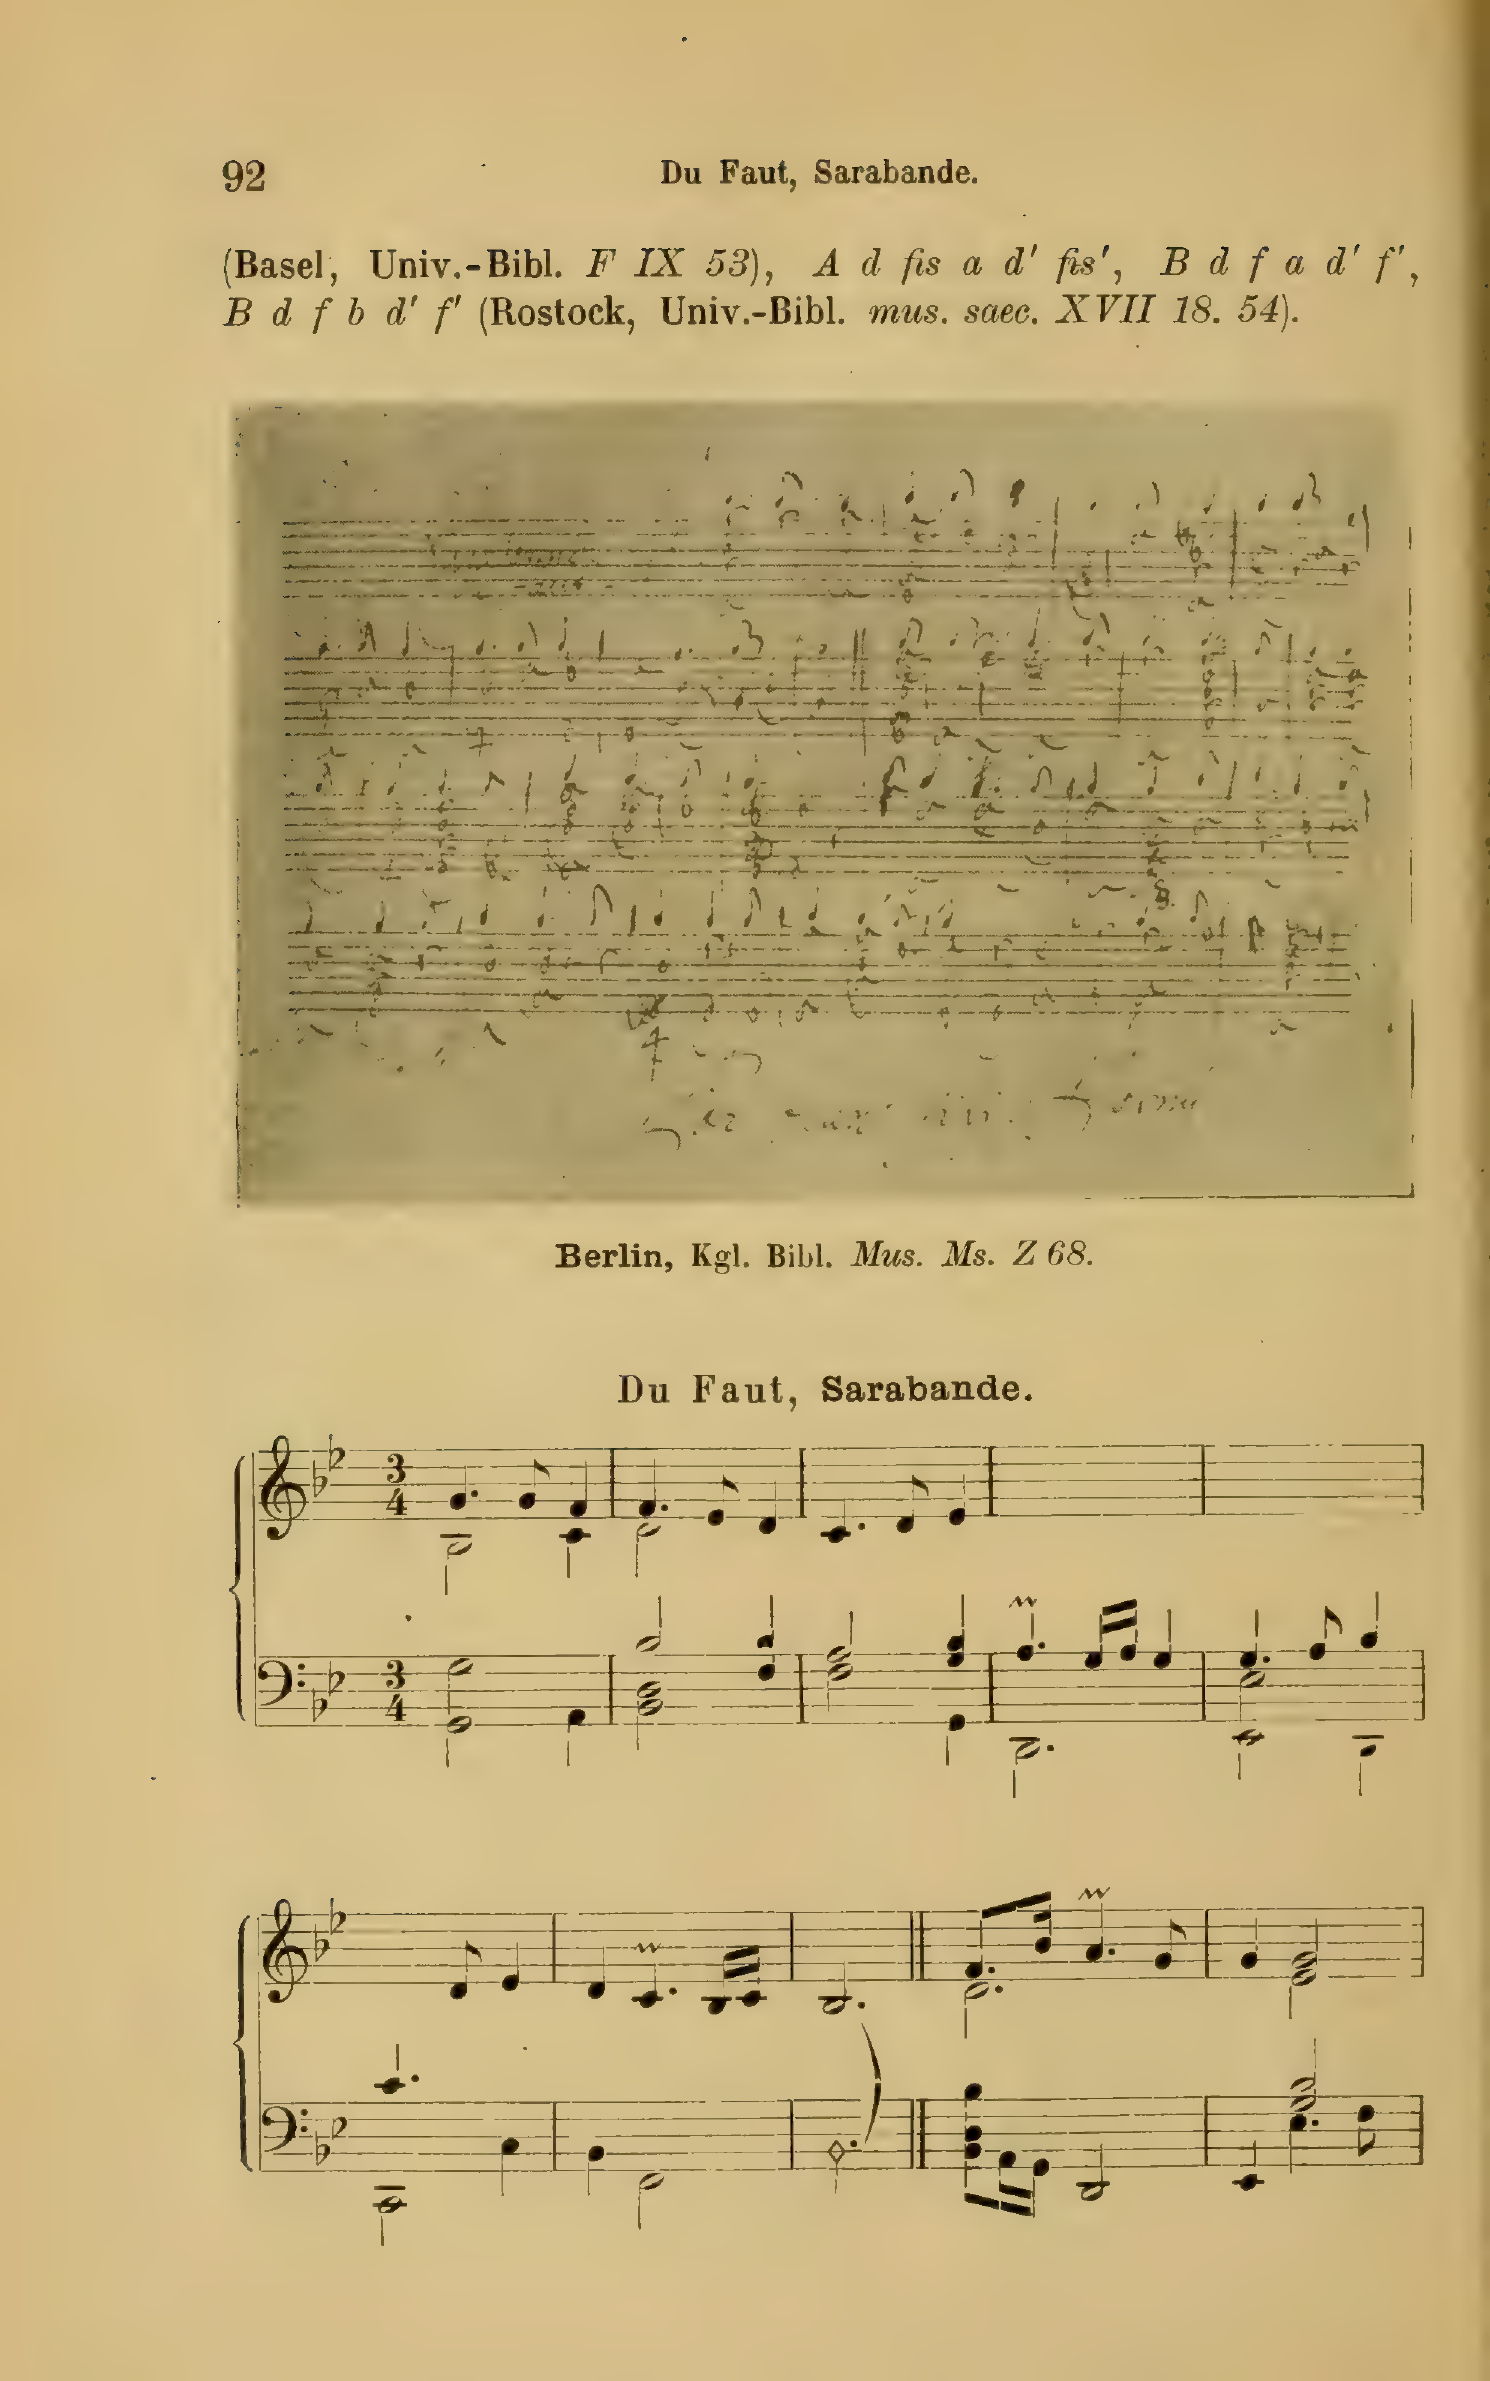 92
Du Faut, Sarabande.
(Basel, Univ.-Bibl. F IX 53), A d fis a d' fis', B d f a d' f',
B d f b d' f' (Rostock, Univ.-Bibl. mus. saec. XVII 18. 54).
Berlin, Kgl. Bibl. Mus. Ms. Z 68.
Du Faut, Sarabande.
3
4
3
4